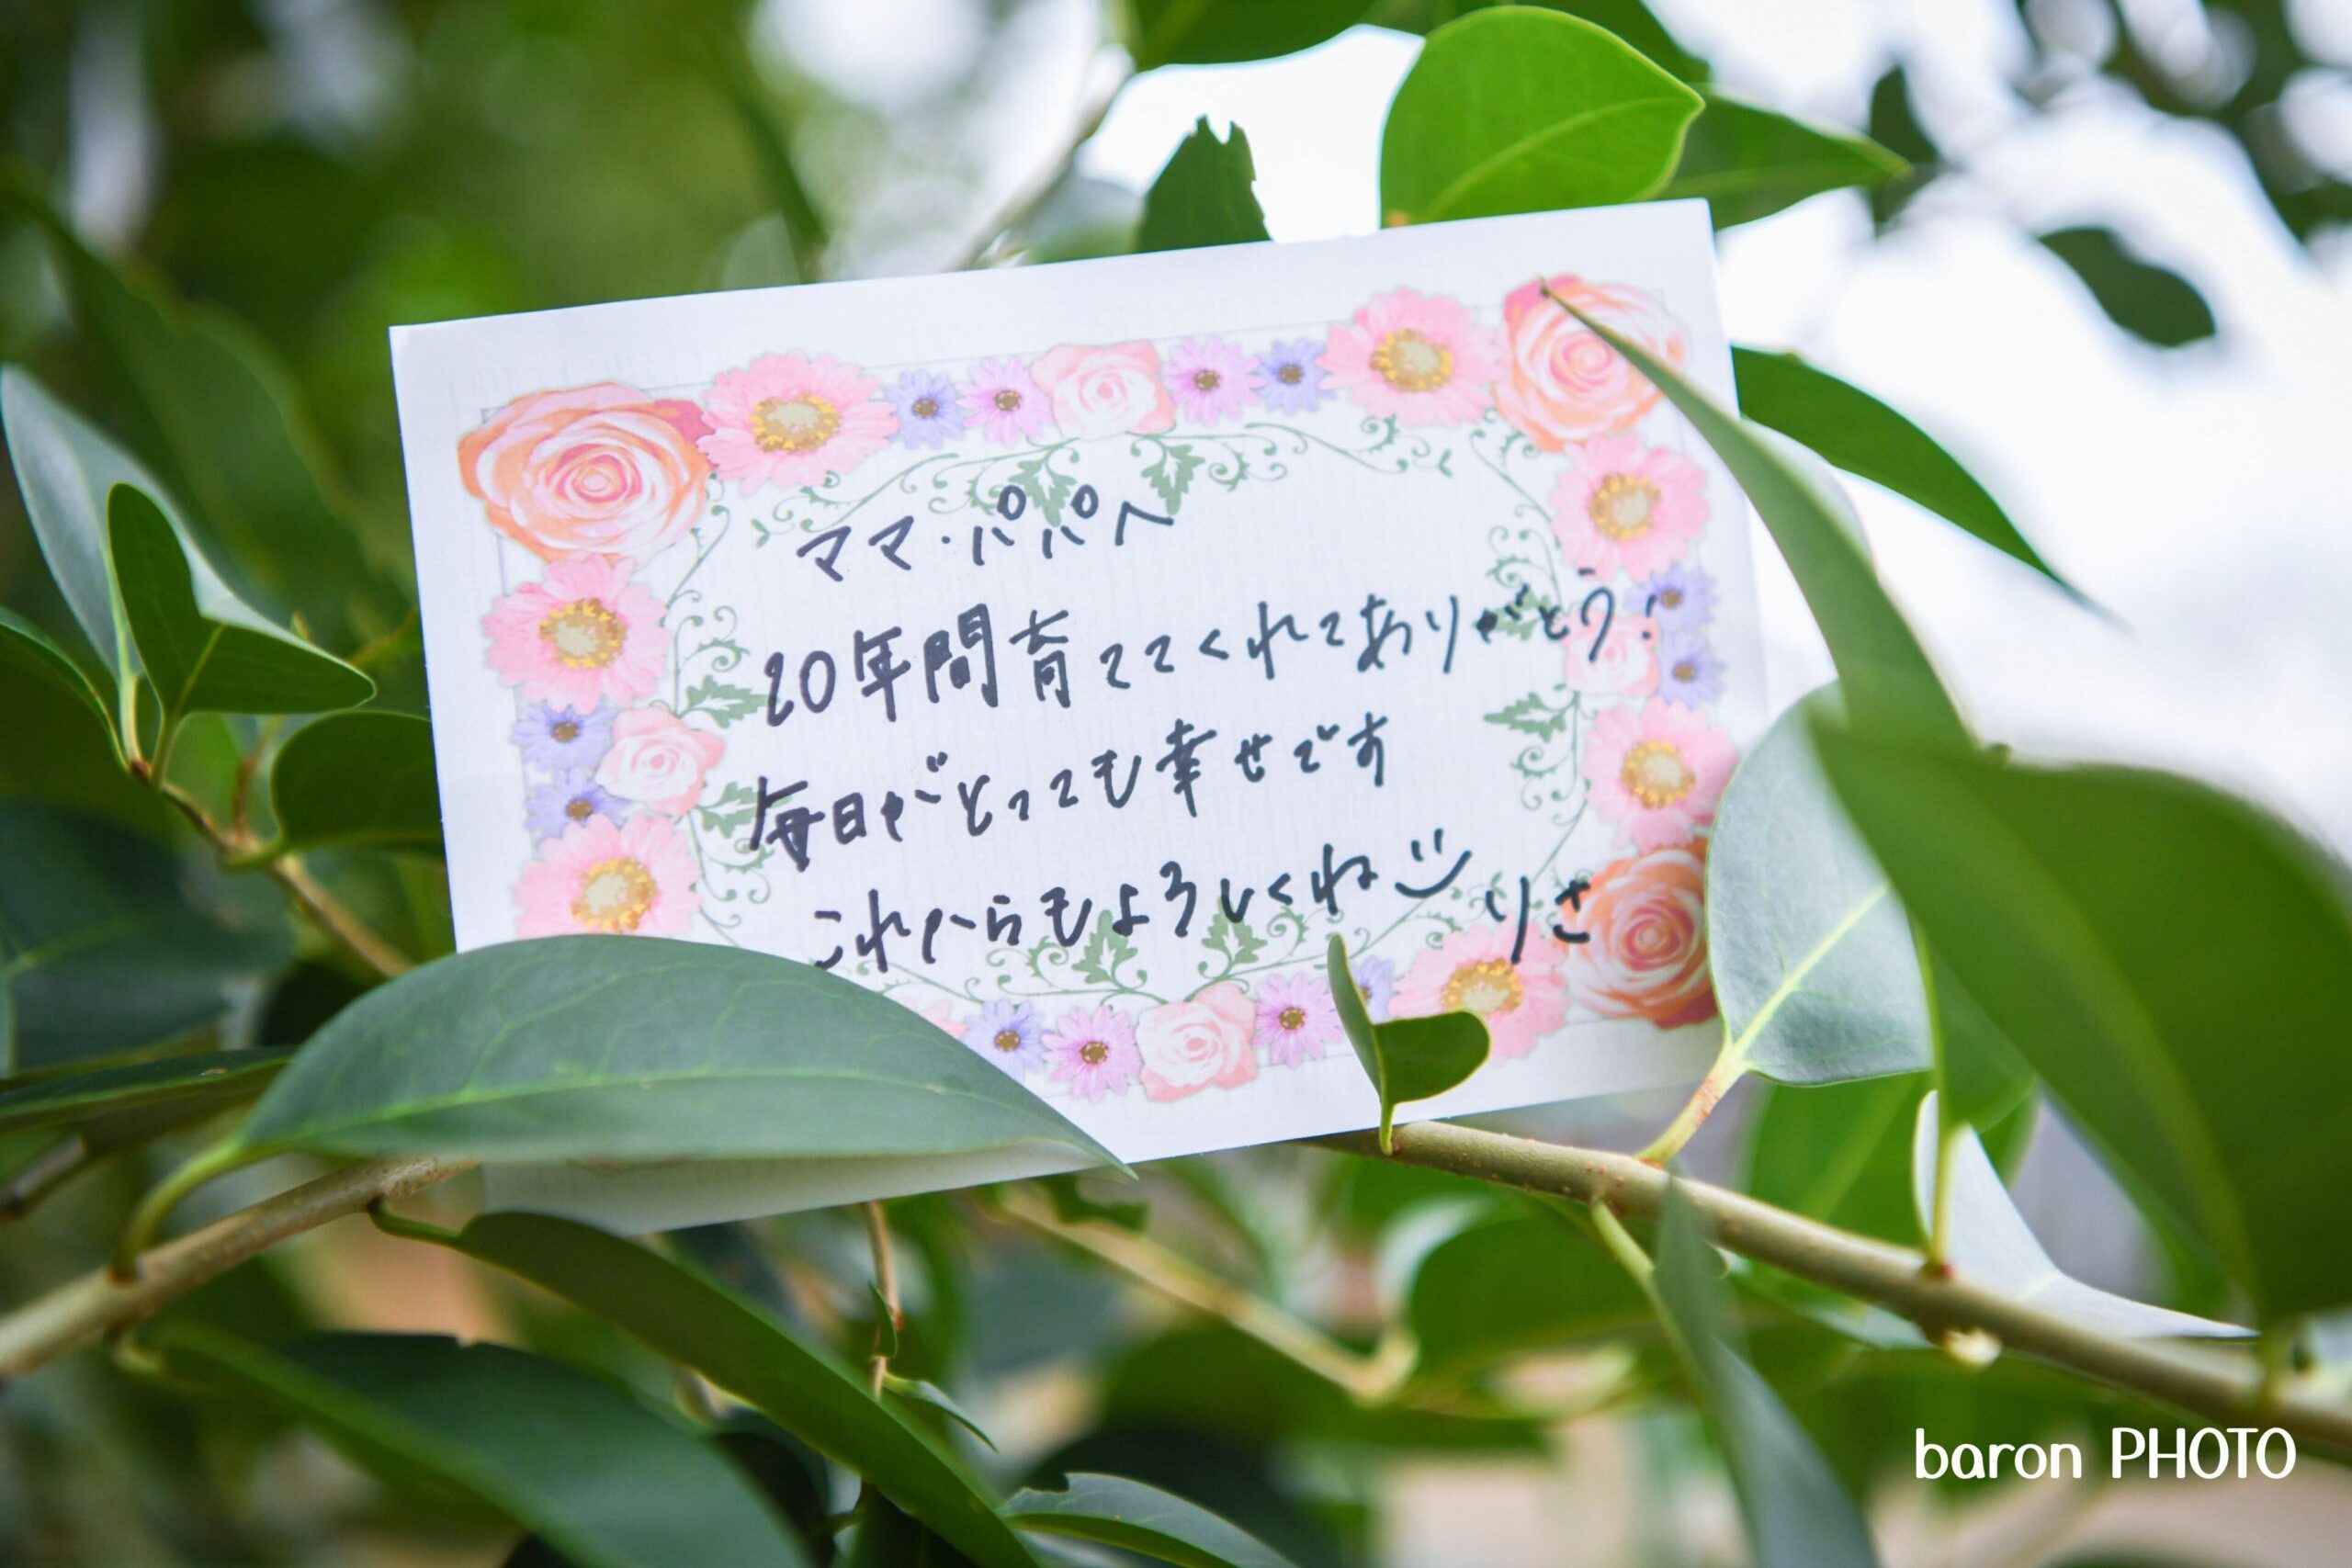 ママ・パパへ
20年間育ててくれてありがとう!
毎日がとっても幸せです
これからもよろしくね
りさ
baron PHOTO